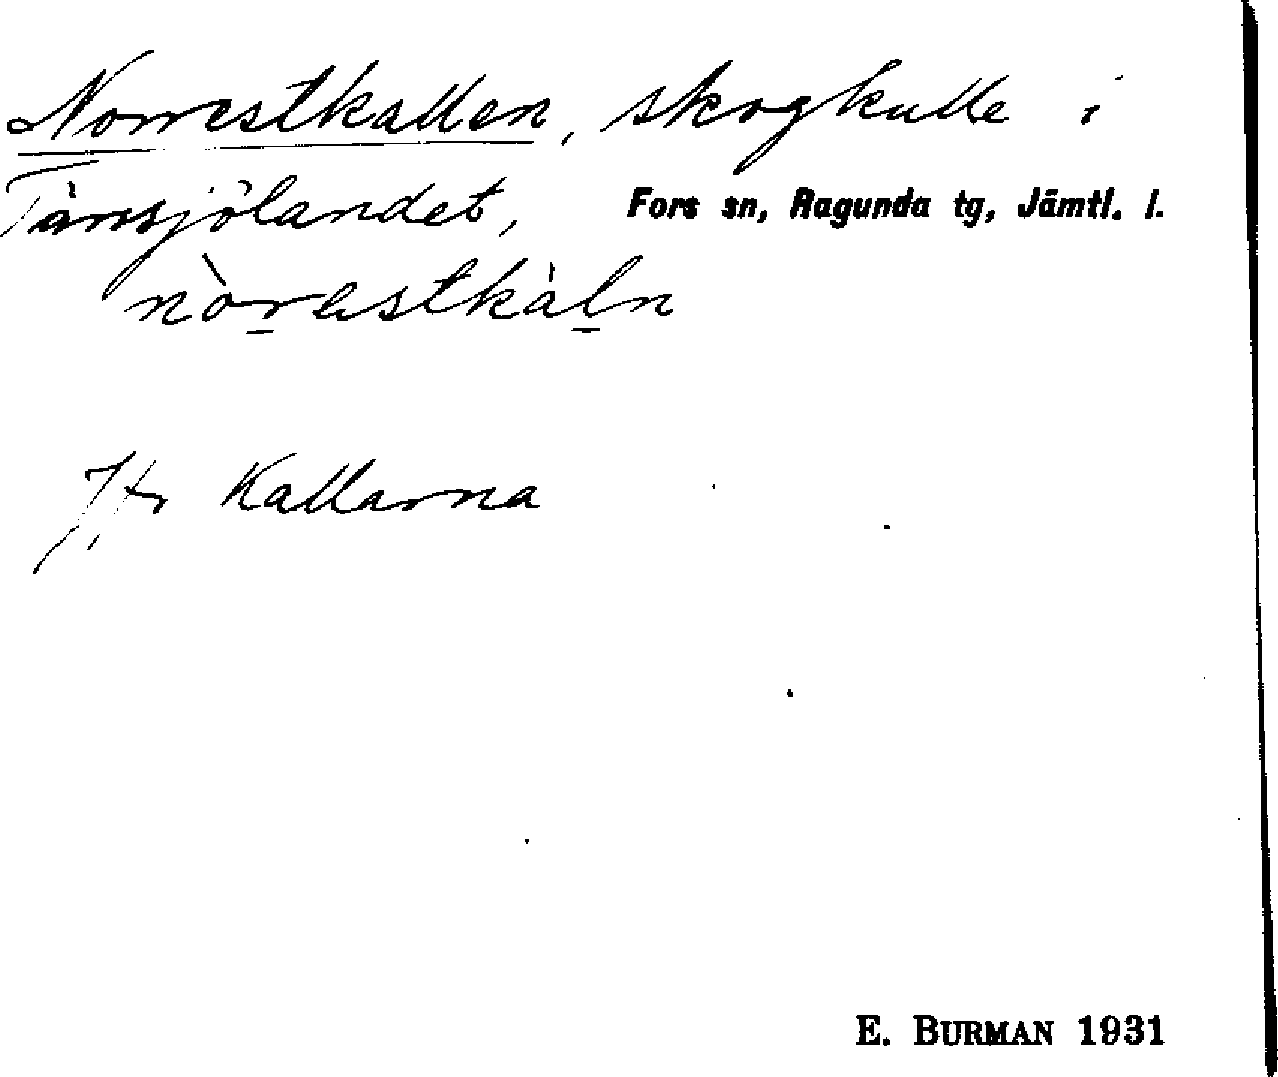 Norrestkallen, skogkulle i
Tånsjölandet, Fors sn, Ragunda tg, Jämtl. l.
nòrestkàln
Jfr Kallarna
E. BURMAN 1931